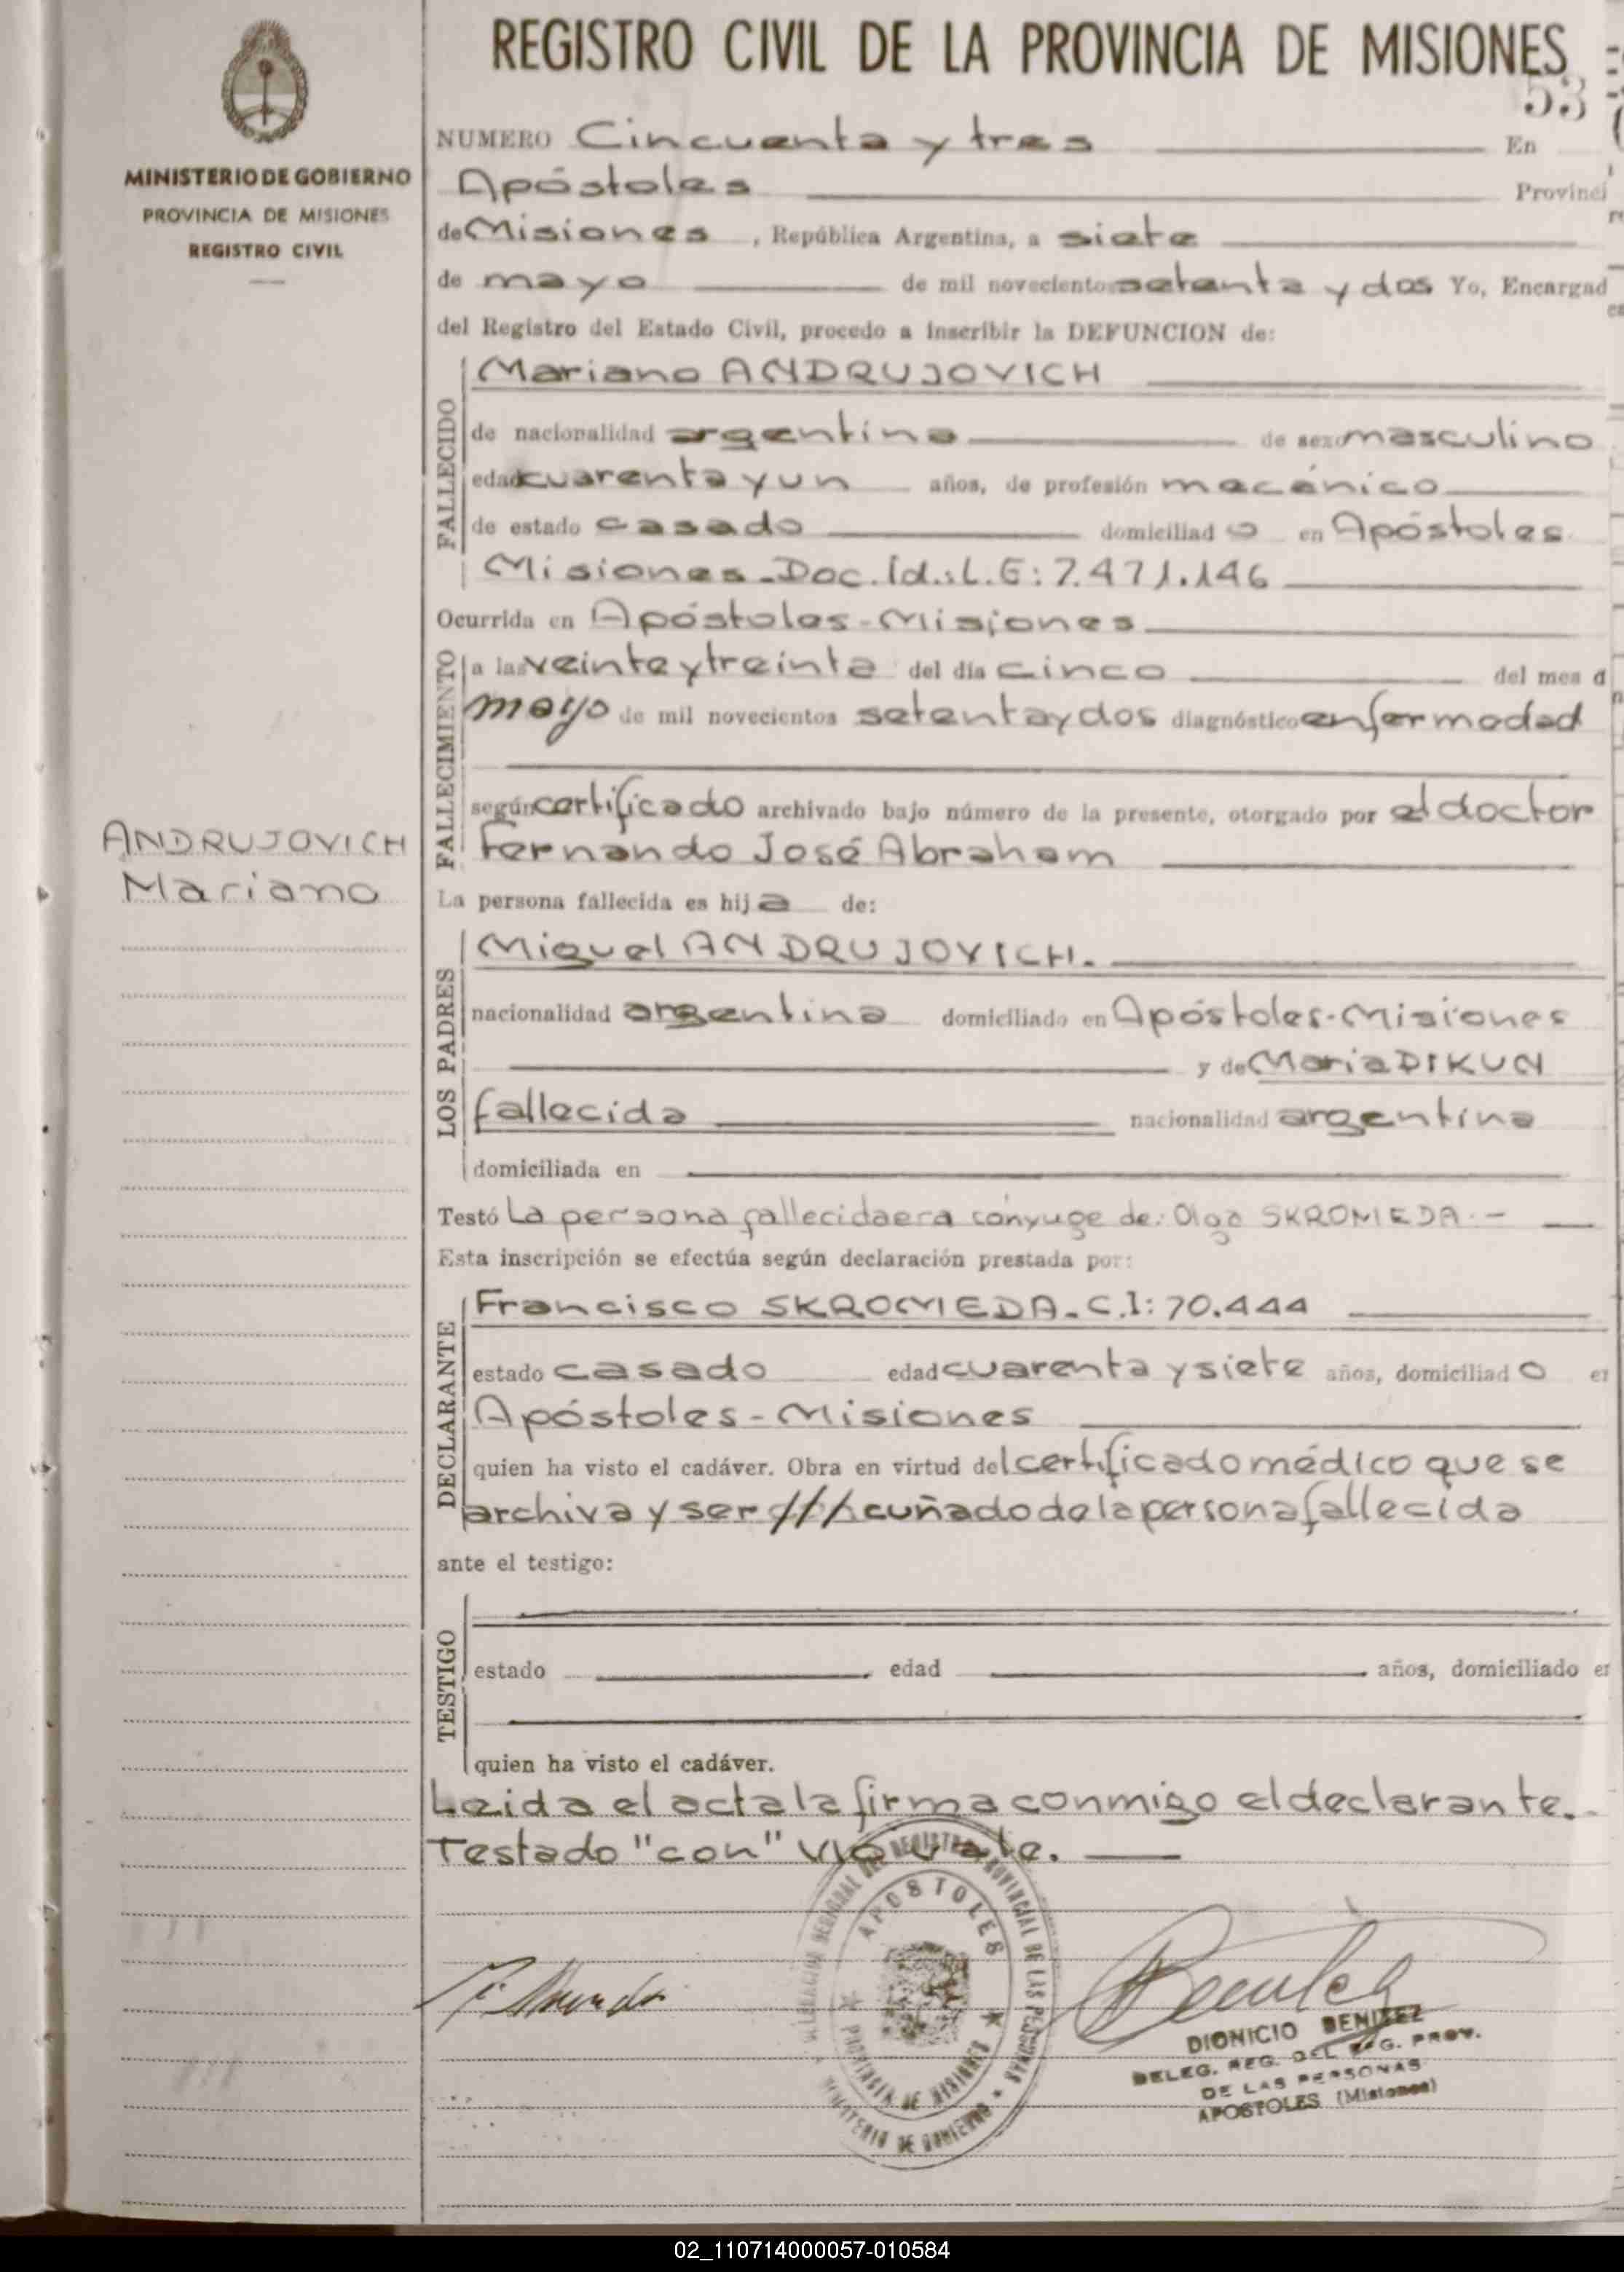 REGISTRO CIVIL DE LA PROVINCIA DE MISIONES
53
MINISTERIO DE GOBIERNO
PROVINCIA DE MISIONES
REGISTRO CIVIL
NUMERO Cincuenta y tres En
Apóstoles Provinci
de Misiones, República Argentina, a siete
de mayo de mil novecientos setenta y dos Yo, Encargad
del Registro del Estado Civil, procedo a inscribir la DEFUNCION de:
FALLECIDO
Mariano ANDRUJOVICH
de nacionalidad argentina de sexo masculino
edad cuarenta y un años, de profesión mecánico
de estado casado domiciliado en Apóstoles
Misiones-Doc. Id.:L.E: 7.471.146
Ocurrida en Apóstoles-Misiones
FALLECIMIENTO
a las veinte y treinta del día cinco del mes d
mayo de mil novecientos setenta y dos diagnóstico enfermedad
según certificado archivado bajo número de la presente, otorgado por el doctor
Fernando José Abraham
ANDRUJOVICH
Mariano
La persona fallecida es hija de:
LOS PADRES
Miguel ANDRUJOVICH.
nacionalidad argentina domiciliado en Apóstoles-Misiones
y de María DIKUN
fallecida nacionalidad argentina
domiciliada en
Testó La persona fallecida era cónyuge de: Olga SKROMEDA.-
Esta inscripción se efectúa según declaración prestada por:
DECLARANTE
Francisco SKROMEDA-C.I: 70.444
estado casado edad cuarenta y siete años, domiciliado e
Apóstoles-Misiones
quien ha visto el cadáver. Obra en virtud del certificado médico que se
archiva y ser /// cuñado de la persona fallecida
ante el testigo:
TESTIGO
estado edad años, domiciliado e
quien ha visto el cadáver.
Leida el acta la firma conmigo el declarante.-
Testado "con" vale.
DELEGACION REGIONAL DEL REGISTRO PROVINCIAL DE LAS PERSONAS
APOSTOLES
PROVINCIA DE MISIONES
MINISTERIO DE GOBIERNO
DIONICIO BENITEZ
DELEG. REG. DEL REG. PROV.
DE LAS PERSONAS
APOSTOLES (Misiones)
02_110714000057-010584